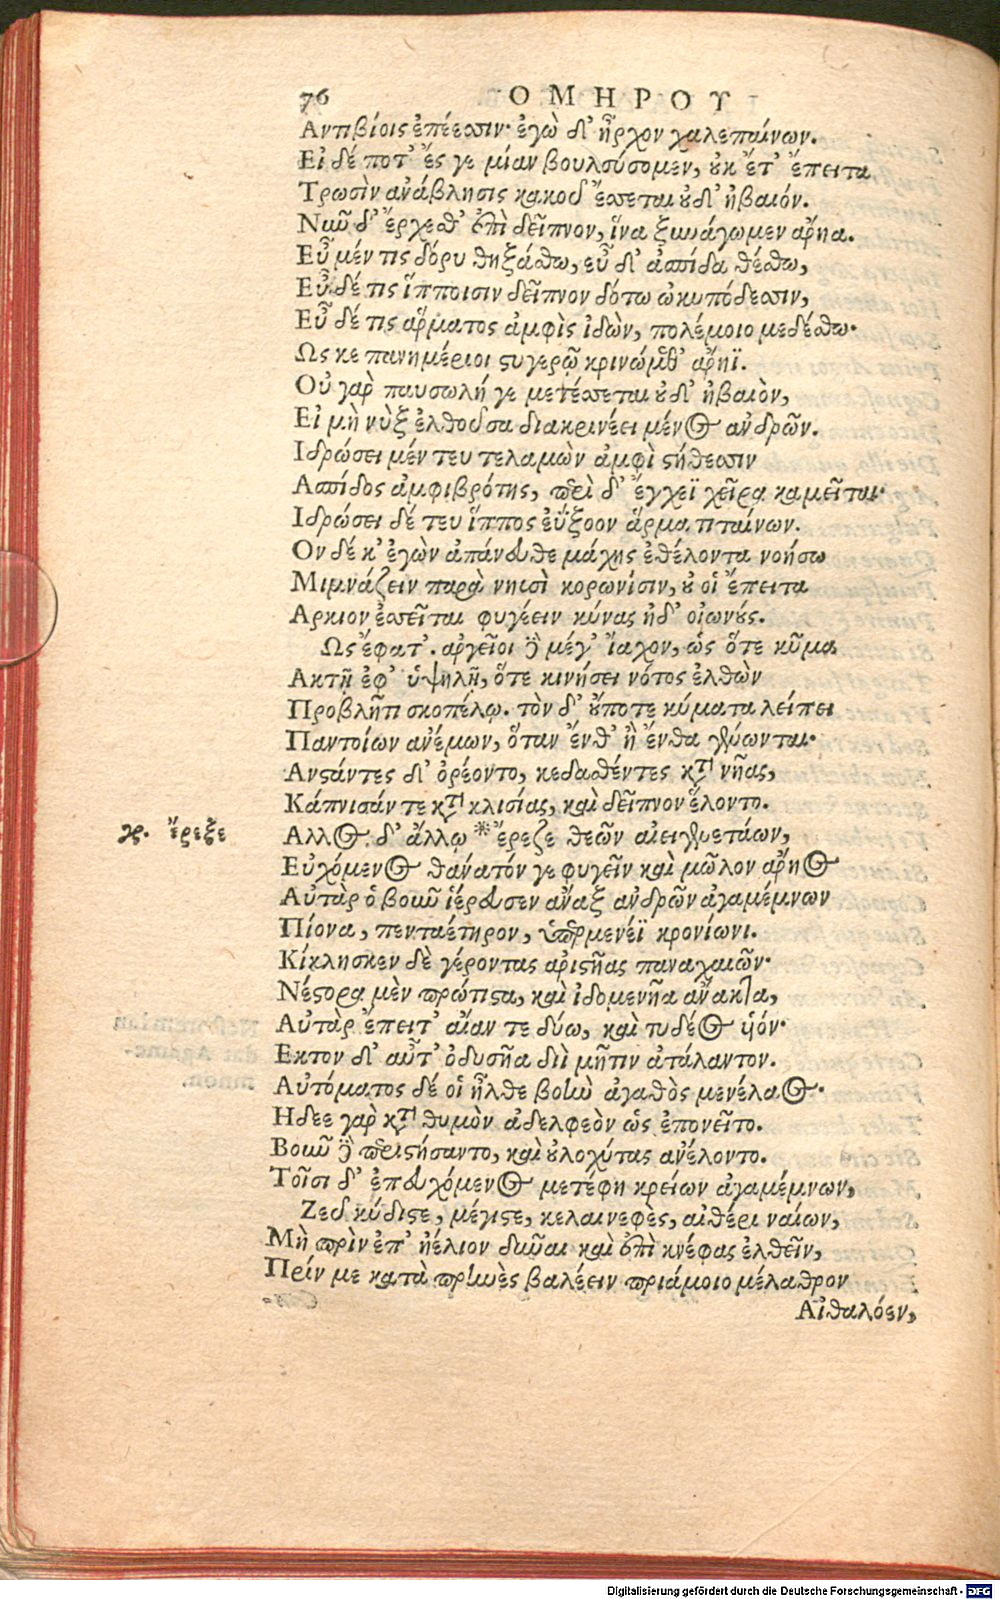 76 ΟΜΗΡΟΥ
Αντιβίοις ἐπέεσσιν· ἐγὼ δ' ἦρχον χαλεπαίνων.
Εἰ δέ ποτ' ἔς γε μίαν βουλεύσομεν, οὐκ ἔτ' ἔπειτα
Τρωσὶν ἀνάβλησις κακοῦ ἔσσεται οὐδ' ἠβαιόν.
Νῦν δ' ἔρχεσθ' ἐπὶ δεῖπνον, ἵνα ξυνάγωμεν ἄρηα.
Εὖ μέν τις δόρυ θηξάσθω, εὖ δ' ἀσπίδα θέσθω,
Εὖ δέ τις ἵπποισιν δεῖπνον δότω ὠκυπόδεσσιν,
Εὖ δέ τις ἅρματος ἀμφὶς ἰδὼν, πολέμοιο μεδέσθω·
Ως κε πανημέριοι στυγερῷ κρινώμεθ' ἄρηϊ.
Οὐ γὰρ παυσωλή γε μετέσσεται οὐδ' ἠβαιὸν,
Εἰ μὴ νὺξ ἐλθοῦσα διακρινέει μένος ἀνδρῶν.
Ιδρώσει μέν τευ τελαμὼν ἀμφὶ στήθεσσιν
Ασπίδος ἀμφιβρότης, περὶ δ' ἔγχεϊ χεῖρα καμεῖται·
Ιδρώσει δέ τευ ἵππος ἐΰξοον ἅρμα τιταίνων.
Ον δέ κ' ἐγὼν ἀπάνευθε μάχης ἐθέλοντα νοήσω
Μιμνάζειν παρὰ νηυσὶ κορωνίσιν, οὔ οἱ ἔπειτα
Αρκιον ἐσσεῖται φυγέειν κύνας ἠδ' οἰωνούς.
Ως ἔφατ'. ἀργεῖοι δὲ μέγ' ἴαχον, ὡς ὅτε κῦμα
Ακτῇ ἐφ' ὑψηλῇ, ὅτε κινήσει νότος ἐλθὼν
Προβλῆτι σκοπέλῳ. τὸν δ' οὔποτε κύματα λείπει
Παντοίων ἀνέμων, ὅταν ἔνθ' ἢ ἔνθα γένωνται·
Ανστάντες δ' ὀρέοντο, κεδασθέντες κατὰ νῆας,
Κάπνισάν τε κατὰ κλισίας, καὶ δεῖπνον ἕλοντο.
Αλλος δ' ἄλλῳ *ἔρεζε θεῶν αἰειγενετάων,
γρ. ἔρεξε
Εὐχόμενος θάνατόν γε φυγεῖν καὶ μῶλον ἄρηος
Αὐτὰρ ὁ βοῦν ἱέρευσεν ἄναξ ἀνδρῶν ἀγαμέμνων
Πίονα, πενταέτηρον, ὑπερμενέϊ κρονίωνι.
Κίκλησκεν δὲ γέροντας ἀριστῆας παναχαιῶν·
Νέστορα μὲν πρώτιστα, καὶ ἰδομενῆα ἄνακτα,
Αὐτὰρ ἔπειτ' αἴαν τε δύω, καὶ τυδέος υἱόν·
Εκτον δ' αὖτ' ὀδυσῆα διῒ μῆτιν ἀτάλαντον.
Αὐτόματος δέ οἱ ἦλθε βοὴν ἀγαθὸς μενέλαος·
Ηδεε γὰρ κατὰ θυμὸν ἀδελφεὸν ὡς ἐπονεῖτο.
Βοῦν δὲ περιστήσαντο, καὶ οὐλοχύτας ἀνέλοντο.
Τοῖσι δ' ἐπευχόμενος μετέφη κρείων ἀγαμέμνων,
Ζεῦ κύδιστε, μέγιστε, κελαινεφὲς, αἰθέρι ναίων,
Μὴ πρὶν ἐπ' ἠέλιον δῦναι καὶ ἐπὶ κνέφας ἐλθεῖν,
Πρίν με κατὰ πρηνὲς βαλέειν πριάμοιο μέλαθρον
Αἰθαλόεν,
Digitalisierung gefördert durch die Deutsche Forschungsgemeinschaft - DFG